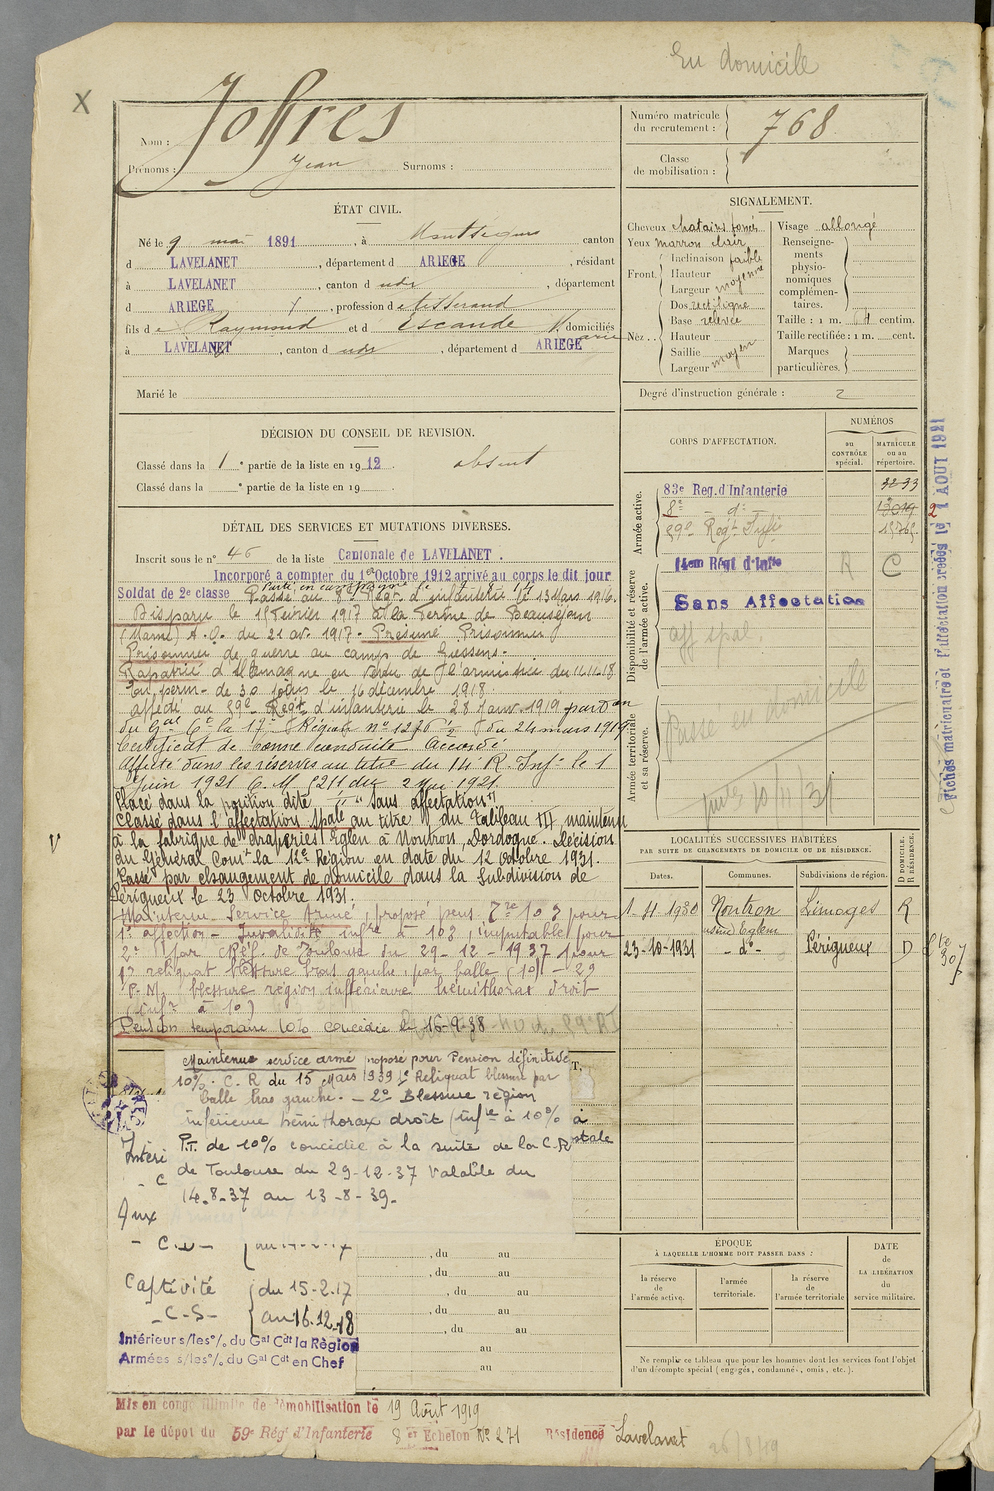 En domicile
X
Nom : Joffres
Prénoms : Jean Surnoms :
Numéro matricule du recrutement : 768
Classe de mobilisation :
ÉTAT CIVIL.
Né le 9 mai 1891, à Montségur canton
d LAVELANET, département d ARIEGE, résidant
à LAVELANET, canton d udr, département
d ARIEGE, profession d e tisserand
fils d e Raymond et d Escande Marie domiciliés
à LAVELANET, canton d udr, département d ARIEGE
Marié le
SIGNALEMENT.
Cheveux chatains foncés
Yeux marron clair
Front. Inclinaison faible
Hauteur
Largeur moyenne
Nez. Dos rectiligne
Base relevée
Hauteur
Saillie
Largeur moyen
Visage allongé
Renseignements physionomiques complémentaires.
Taille : 1 m. 64 centim.
Taille rectifiée : 1 m. cent.
Marques particulières.
Degré d'instruction générale : 2
DÉCISION DU CONSEIL DE REVISION.
Classé dans la 1e partie de la liste en 1912. absent
Classé dans la e partie de la liste en 19 .
DÉTAIL DES SERVICES ET MUTATIONS DIVERSES.
Inscrit sous le n° 46 de la liste Cantonale de LAVELANET.
Incorporé a compter du 1er Octobre 1912 arrivé au corps le dit jour
Soldat de 2e classe
Passé au 8e Régt d'infanterie le 13 Mars 1916.
Disparu le 15 Février 1917 à la Ferme de Beauséjour
(Marne) A.O. du 21 av. 1917. Présumé Prisonnier
Prisonnier de guerre au camp de Giessen.
Rapatrié d'Allemagne en vertu de l'armistice du 11.11.18
En perm. de 30 jours le 16 décembre 1918.
affecté au 59e Régt d'infanterie le 28 Janv. 1919 par on
du Gal Ct la 17e Région n° 1276 1/2 du 24 mars 1919
Certificat de bonne conduite Accordé
Affecté dans les réserves au titre du 14e R. Inf. le 1
Juin 1921 C. M 8211 du 2 Mai 1921.
Placé dans la position dite "Sans affectation"
Classé dans l'affectation spale au titre du Tableau III, maintenu
à la fabrique de draperies Eglen à Nontron, Dordogne. Décision
du Général Comt la 12e Région en date du 12 Octobre 1931.
Passé par changement de domicile dans la Subdivision de
Périgueux le 23 Octobre 1931.
Maintenu Service Armé, proposé pens. Tre 10% pour
1e affection - Invalidité infre à 10%, imputable pour
2e par C.Réf. de Toulouse du 29-12-1937 pour
1° reliquat blessure bras gauche, par balle (10) - 2°
P.M. blessure région inférieure hémithorax droit
(infre à 10)
Pension temporaire 10% concédée le 16-9-38
Maintenu service armé proposé pour Pension définitive
10%. C.R du 15 Mars 1939 1° Reliquat blessure par
balle bras gauche. - 2° Blessure région
inférieure hémithorax droit (infre à 10%
P.T. de 10% concédée à la suite de la C.R
de Toulouse du 29-12-37 Valable du
14-8-37 au 13-8-39.
Intéri
- C
Aux
- C.D -
Captivité du 15-2-17
- C.S - au 16.12.18
Intérieur s/les o/. du Gal Cdt la Région
Armées s/les o/. du Gal Cdt en Chef
, du au
, du au
, du au
, du au
, du au
au
au
CORPS D'AFFECTATION.
NUMÉROS
au CONTRÔLE spécial.
MATRICULE ou au répertoire.
Armée active.
83e Reg. d'Infanterie 3233
8e - d° -
59e Régt Infie 15765
Disponibilité et réserve de l'armée active.
14em Régt d'Infie R C
Sans Affectation
aff spal
Armée territoriale et sa réserve.
Passé en domicile
10/11/31
Fiches matriculaire et d'affectation créées le 1 AOUT 1921
LOCALITÉS SUCCESSIVES HABITÉES
PAR SUITE DE CHANGEMENTS DE DOMICILE OU DE RÉSIDENCE.
Dates. Communes. Subdivisions de région. D DOMICILE. R RÉSIDENCE.
1-11-1930 Nontron Limoges R
usine Eglem
23-10-1931 - d° - Périgueux D
ÉPOQUE
À LAQUELLE L'HOMME DOIT PASSER DANS :
la réserve de l'armée active.
l'armée territoriale.
la réserve de l'armée territoriale
DATE de LA LIBÉRATION du service militaire.
Ne remplir ce tableau que pour les hommes dont les services font l'objet
d'un décompte spécial (engagés, condamnés, omis, etc.).
Mis en congé illimité de démobilisation le 19 Août 1919
par le dépot du 59e Rég' d'Infanterie 8e Echelon N° 271 Résidence Lavelanet
26/8/19